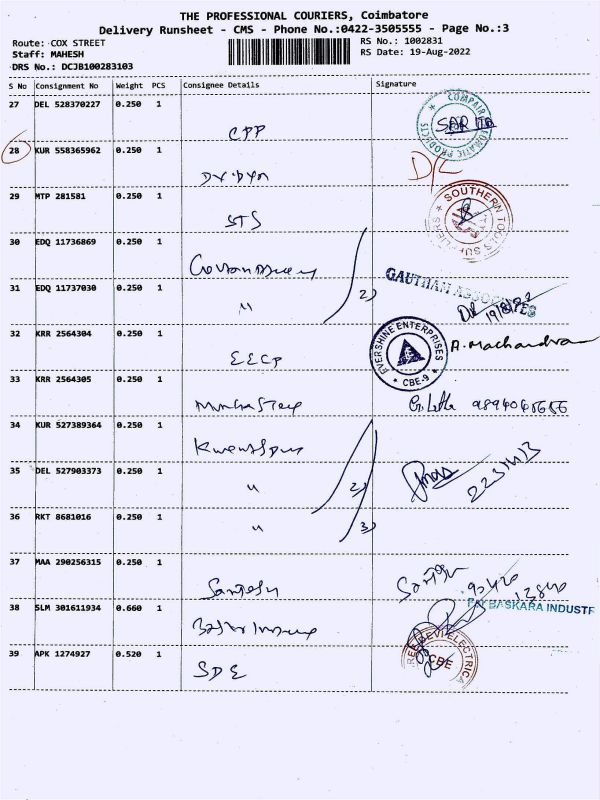 THE PROFESSIONAL COURIERS, Coimbatore
Delivery Runsheet - CMS - Phone No.:0422-3505555 - Page No.:3
Route: COX STREET RS No.: 1002831
Staff: MAHESH RS Date: 19-Aug-2022
DRS No.: DCJB100283103
S No Consignment No Weight PCS Consignee Details Signature
27 DEL 528370227 0.250 1
CPP
COMPAIR
PRODUCTS
28 KUR 558365962 0.250 1
D/L
29 MTP 281581 0.250 1
STS
SOUTHERN TOOLS SUPPLIERS
30 EDQ 11736869 0.250 1
31 EDQ 11737030 0.250 1
" 2)
GAUTHAM ASSOCIATES
19/8/22
32 KRR 2564304 0.250 1
EECP
EVERSHINE ENTERPRISES
CBE-9
33 KRR 2564305 0.250 1
34 KUR 527389364 0.250 1
35 DEL 527903373 0.250 1
" 2)
36 RKT 8681016 0.250 1
" 3)
37 MAA 290256315 0.250 1
Santosh
38 SLM 301611934 0.660 1
BASKARA INDUSTR
39 APK 1274927 0.520 1
SDE
REEDEVI ELECTRICA
CBE